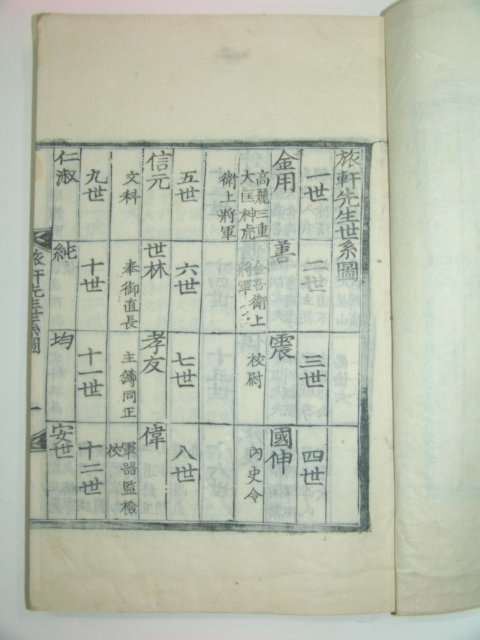 旅軒先生世系圖
一世 二世 三世 四世
金用 善 震 國伸
高麗三重大匡神虎衛上將軍 金吾衛上將軍 校尉 內史令
五世 六世 七世 八世
信元 世林 孝友 偉
文科 奉御直長 主簿同正 軍器監檢校
九世 十世 十一世 十二世
仁淑 純 均 安世
旅軒先生世系圖 一